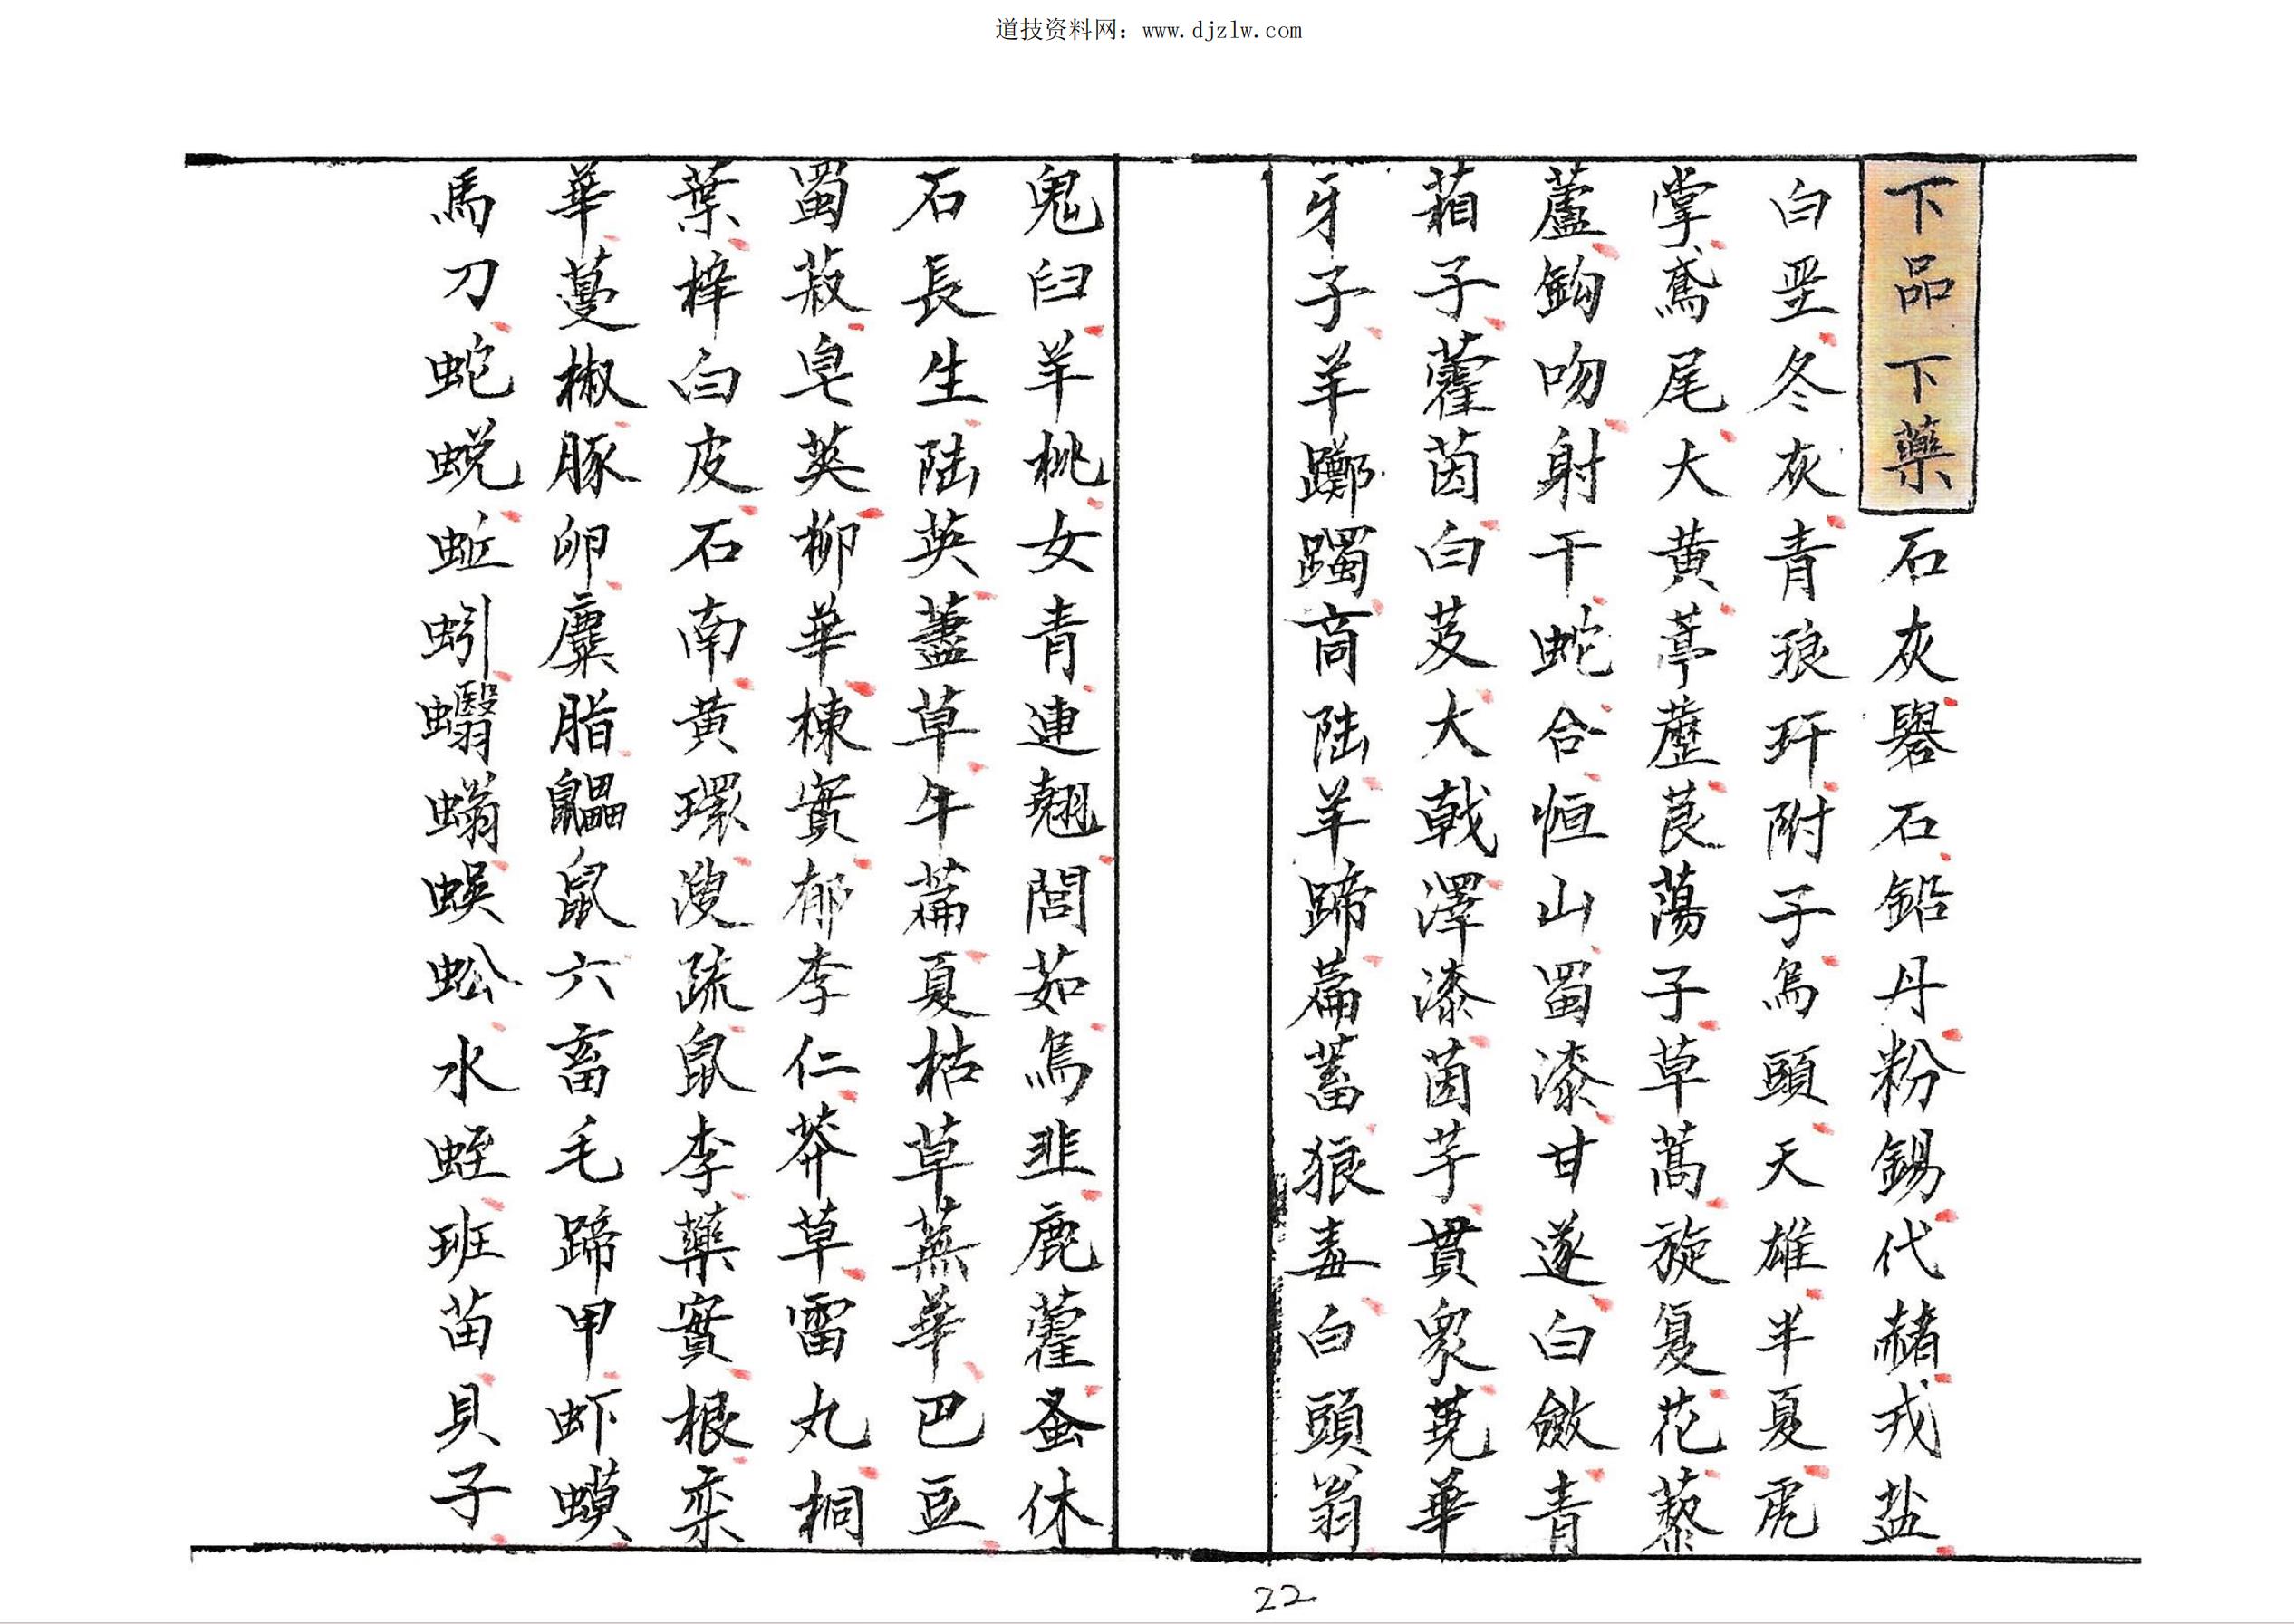 道技资料网：www.djzlw.com
下品下藥石灰礜石鉛丹粉錫代赭戎盐
白垩冬灰青琅玕附子烏頭天雄半夏虎
掌鳶尾大黄葶藶莨蕩子草蒿旋复花藜
蘆鉤吻射干蛇合恒山蜀漆甘遂白斂青
葙子藿茵白芨大戟澤漆茵芋貫衆蕘華
牙子羊躑躅商陆羊蹄萹蓄狼毒白頭翁
鬼臼羊桃女青連翹閭茹烏韭鹿藿蚤休
石長生陆英藎草午萹夏枯草蕪華巴豆
蜀菽皂莢柳華楝實郁李仁莽草雷丸桐
葉梓白皮石南黄環溲疏鼠李藥實根栾
華蔓椒豚卵麋脂鼺鼠六畜毛蹄甲虾蟆
馬刀蛇蜕蚯蚓蠮螉蜈蚣水蛭班苗貝子
22